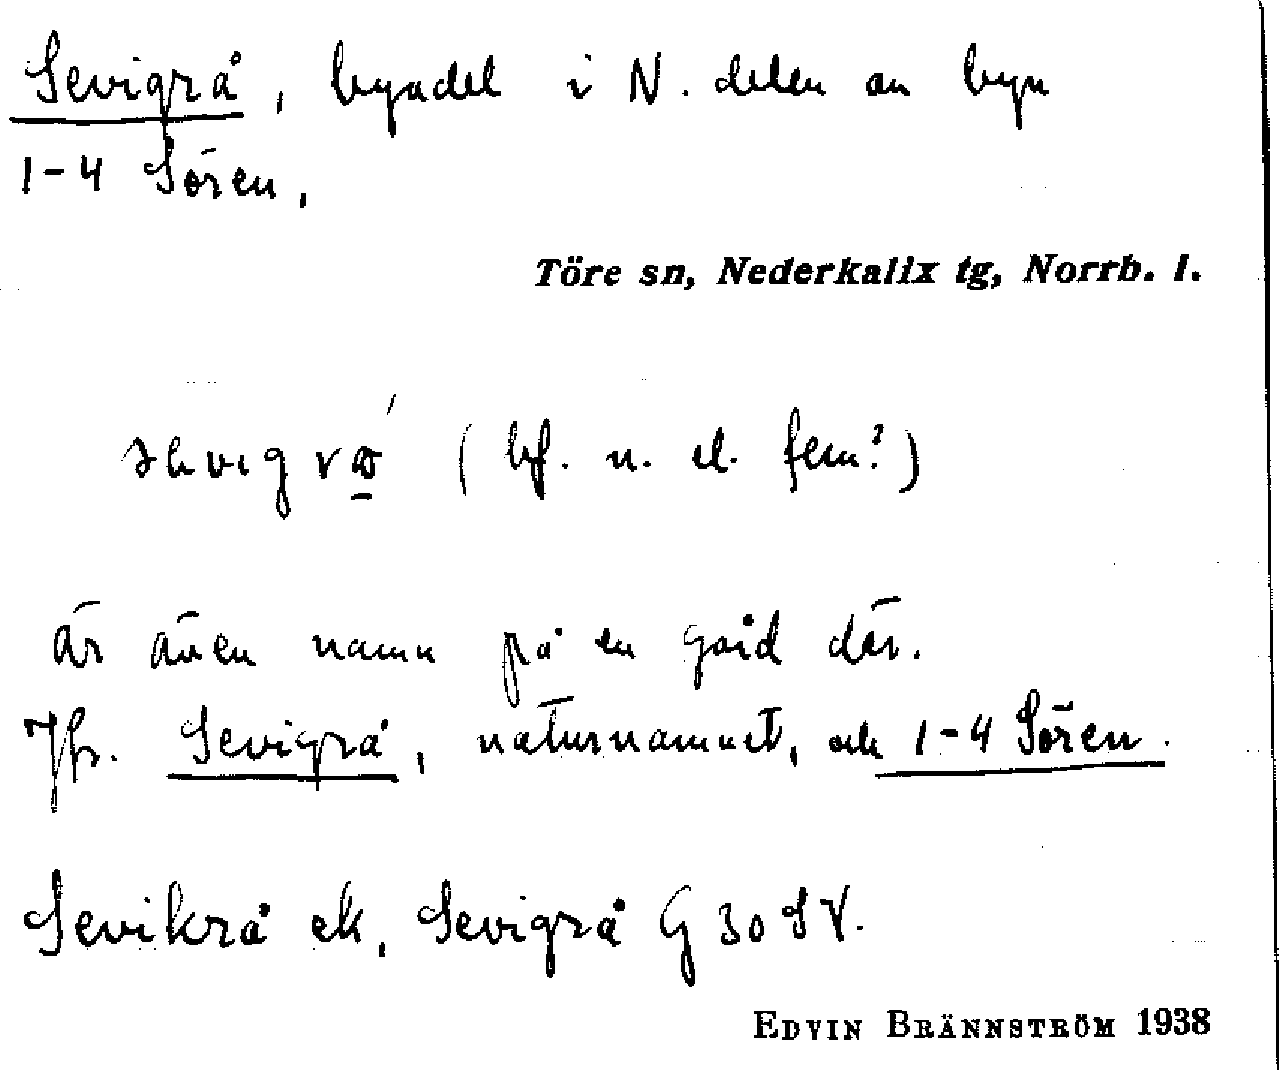 Sevigrå, byadel i N. delen av byn
1-4 Sören,
Töre sn, Nederkalix tg, Norrb. l.
(bf. n. el. fem?)
är även namn på en gård där.
Jfr. Sevigrå, naturnamnet, och 1-4 Sören.
Sevikrå ek, Sevigrå G 30 SV.
EDVIN BRÄNNSTRÖM 1938